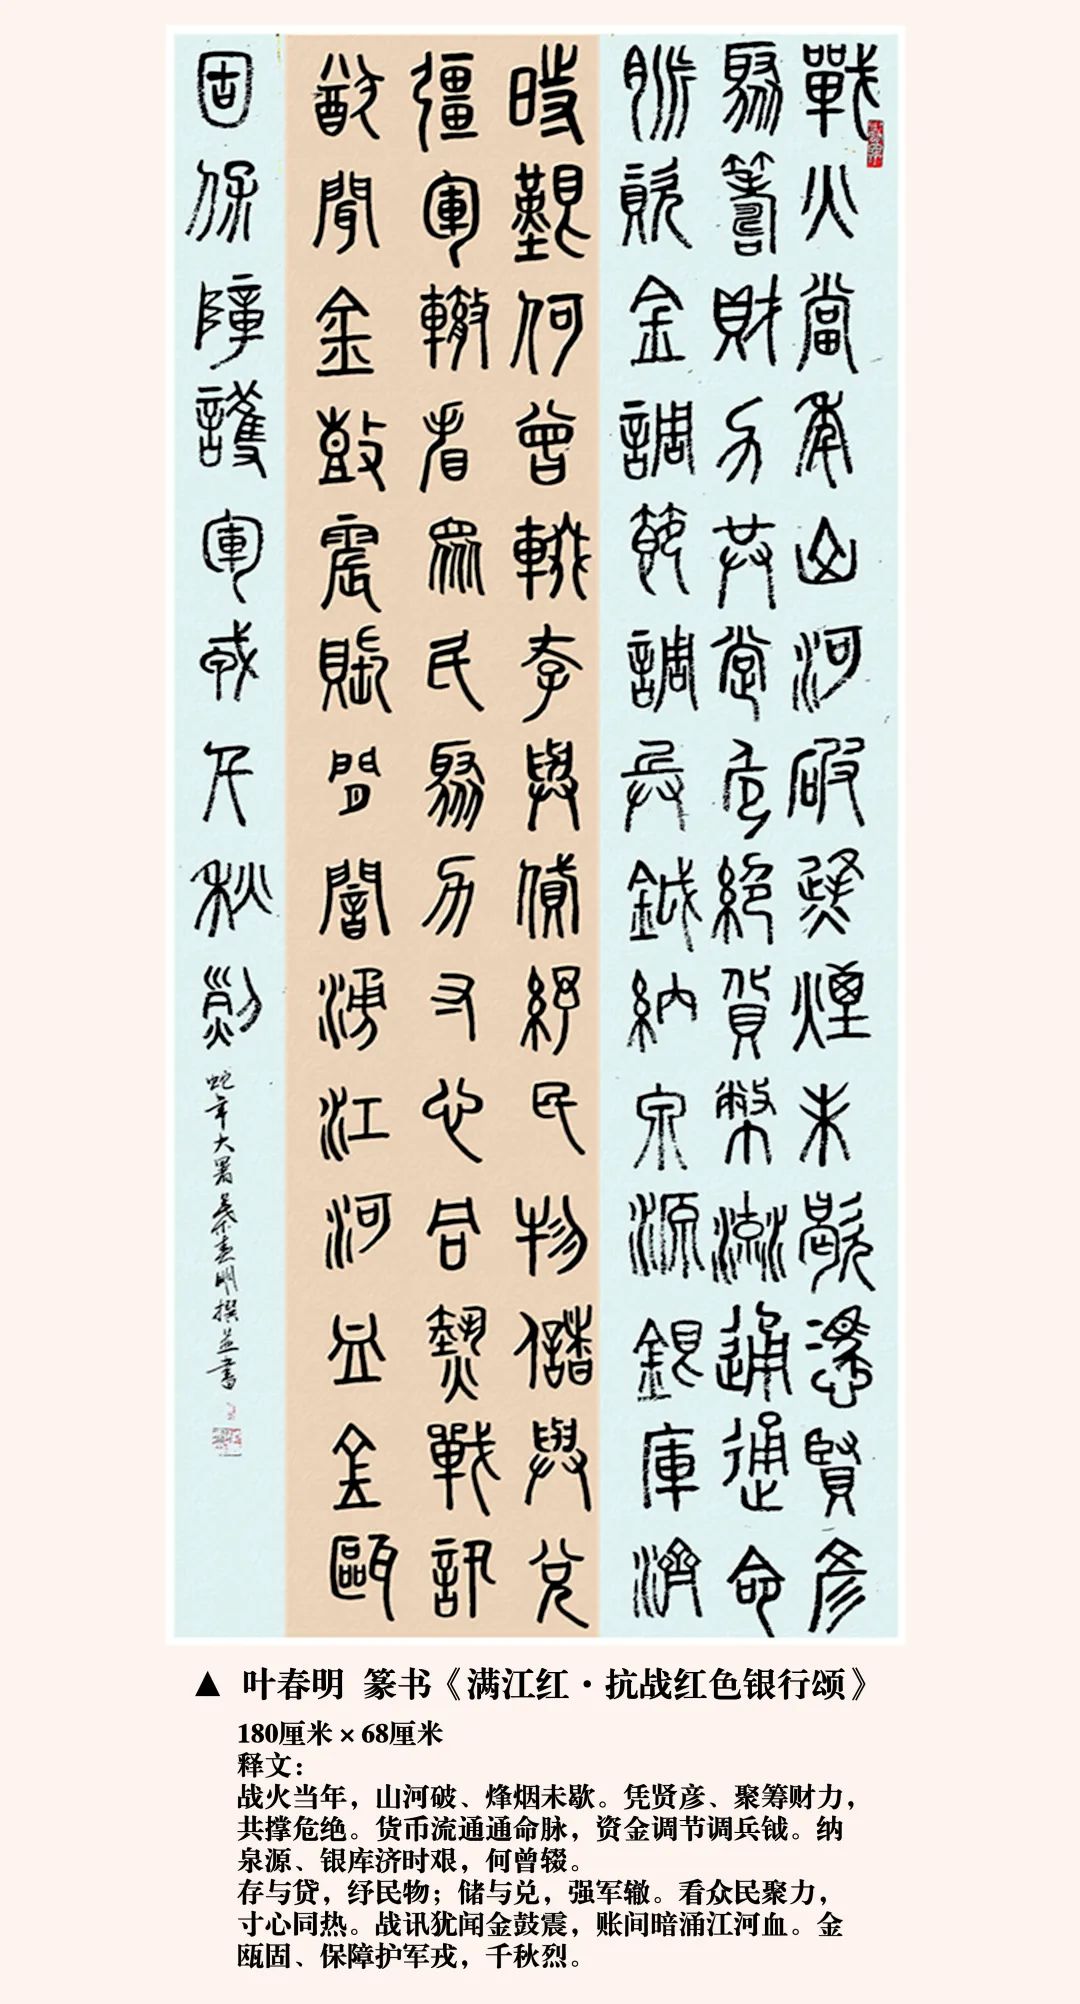 戰火當年山河破烽煙未歇憑賢彥
聚籌財力共撐危絕貨幣流通通命
脈資金調節調兵鉞納泉源銀庫濟
時艱何曾輟存與貸紓民物儲與兌
彊軍轍看眾民聚力寸心同熱戰訊
猶聞金鼓震賬間暗湧江河血金甌
固保障護軍戎千秋烈
蛇年大暑葉春明撰并書
▲ 叶春明 篆书《满江红·抗战红色银行颂》
180厘米×68厘米
释文：
战火当年，山河破、烽烟未歇。凭贤彦、聚筹财力，
共撑危绝。货币流通通命脉，资金调节调兵钺。纳
泉源、银库济时艰，何曾辍。
存与贷，纾民物；储与兑，强军辙。看众民聚力，
寸心同热。战讯犹闻金鼓震，账间暗涌江河血。金
瓯固、保障护军戎，千秋烈。